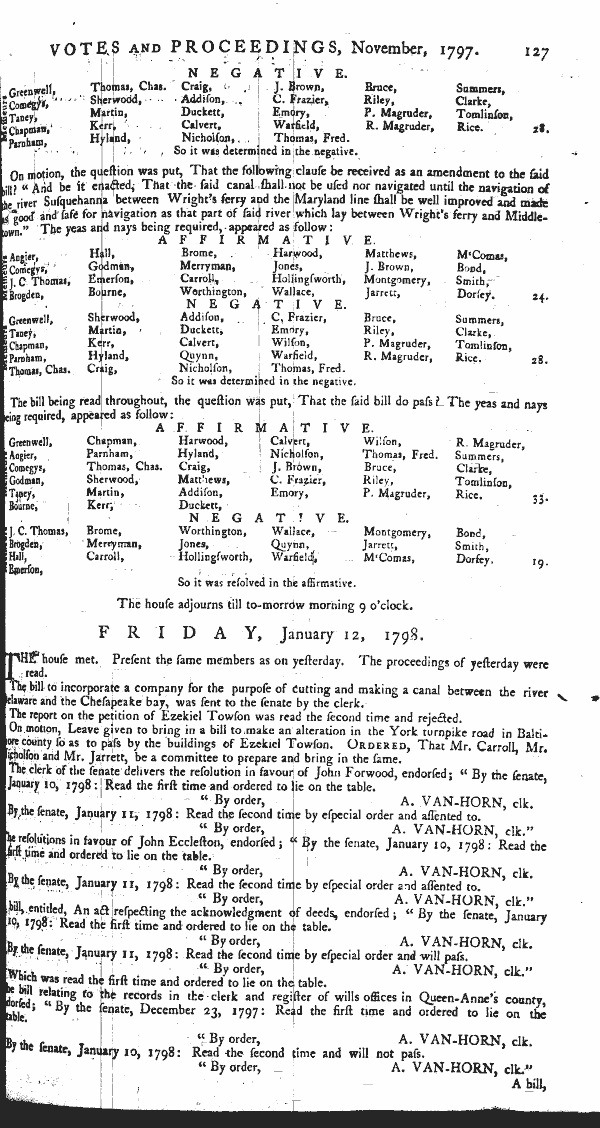 VOTES AND PROCEEDINGS, November, 1797. 127
N E G A T I V E.
Greenwell, Thomas, Chas. Craig, J. Brown, Bruce, Summers,
Comegys, Sherwood, Addiſon, C. Frazier, Riley, Clarke,
Taney, Martin, Duckett, Emory, P. Magruder, Tomlinſon,
Chapman, Kerr, Calvert, Warfield, R. Magruder, Rice. 28.
Parnham, Hyland, Nicholſon, Thomas, Fred.
So it was determined in the negative.
On motion, the queſtion was put, That the following clauſe be received as an amendment to the ſaid
bill? " And be it enacted, That the ſaid canal ſhall not be uſed nor navigated until the navigation of
the river Suſquehanna between Wright's ferry and the Maryland line ſhall be well improved and made
as good and ſafe for navigation as that part of ſaid river which lay between Wright's ferry and Middle-
town." The yeas and nays being required, appeared as follow:
A F F I R M A T I V E.
Angier, Hall, Brome, Harwood, Matthews, M'Comas,
Comegys, Godman, Merryman, Jones, J. Brown, Bond,
J. C Thomas, Emerſon, Carroll, Hollingſworth, Montgomery, Smith,
Brogden, Bourne, Worthington, Wallace, Jarrett, Dorſey. 24.
N E G A T I V E.
Greenwell, Sherwood, Addiſon, C, Frazier, Bruce, Summers,
Taney, Martin, Duckett, Emory, Riley, Clarke,
Chapman, Kerr, Calvert, Wilſon, P. Magruder, Tomlinſon,
Parnham, Hyland, Quynn, Warfield, R. Magruder, Rice. 28.
Thomas, Chas. Craig, Nicholſon, Thomas, Fred.
So it was determined in the negative.
The bill being read throughout, the queſtion was put, That the ſaid bill do paſs? The yeas and nays
being required, appeared as follow:
A F F I R M A T I V E.
Greenwell, Chapman, Harwood, Calvert, Wilſon, R. Magruder,
Angier, Parnham, Hyland, Nicholſon, Thomas, Fred. Summers,
Comegys, Thomas, Chas. Craig, J. Brown, Bruce, Clarke,
Godman, Sherwood, Matthews, C. Frazier, Riley, Tomlinſon,
Taney, Martin, Addiſon, Emory, P. Magruder, Rice. 33.
Bourne, Kerr, Duckett,
N E G A T I V E.
J. C. Thomas, Brome, Worthington, Wallace, Montgomery, Bond,
Brogden, Merryman, Jones, Quynn, Jarrett, Smith,
Hall, Carroll, Hollingſworth, Warfield, M'Comas, Dorſey. 19.
Emerſon,
So it was reſolved in the affirmative.
The houſe adjourns till to-morrow morning 9 o'clock.
F R I D A Y, January 12, 1798.
THE houſe met. Preſent the ſame members as on yeſterday. The proceedings of yeſterday were
read.
The bill to incorporate a company for the purpoſe of cutting and making a canal between the river
Delaware and the Cheſapeake bay, was ſent to the ſenate by the clerk.
The report on the petition of Ezekiel Towſon was read the ſecond time and rejected.
On motion, Leave given to bring in a bill to make an alteration in the York turnpike road in Balti-
more county ſo as to paſs by the buildings of Ezekiel Towſon. ORDERED, That Mr. Carroll, Mr.
Nicholſon and Mr. Jarrett, be a committee to prepare and bring in the ſame.
The clerk of the ſenate delivers the reſolution in favour of John Forwood, endorſed; " By the ſenate,
January 10, 1798: Read the firſt time and ordered to lie on the table.
" By order, A. VAN-HORN, clk.
By the ſenate, January 11, 1798: Read the ſecond time by eſpecial order and aſſented to.
" By order, A. VAN-HORN, clk."
The reſolutions in favour of John Eccleſton, endorſed; " By the ſenate, January 10, 1798: Read the
firſt time and ordered to lie on the table.
" By order, A. VAN-HORN, clk.
By the ſenate, January 11, 1798: Read the ſecond time by eſpecial order and aſſented to.
" By order, A. VAN-HORN, clk."
bill, entitled, An act reſpecting the acknowledgment of deeds, endorſed; " By the ſenate, January
10, 1798: Read the firſt time and ordered to lie on the table.
" By order, A. VAN-HORN, clk.
By the ſenate, January 11, 1798: Read the ſecond time by eſpecial order and will paſs.
" By order, A. VAN-HORN, clk."
Which was read the firſt time and ordered to lie on the table.
The bill relating to the records in the clerk and regiſter of wills offices in Queen-Anne's county,
endorſed; " By the ſenate, December 23, 1797: Read the firſt time and ordered to lie on the
table.
" By order, A. VAN-HORN, clk.
By the ſenate, January 10, 1798: Read the ſecond time and will not paſs.
" By order, A. VAN-HORN, clk."
A bill,